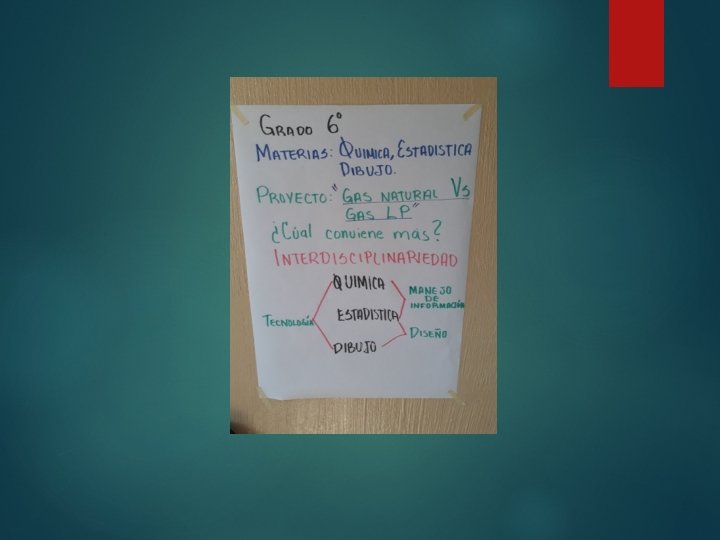 GRADO 6°
MATERIAS: QUIMICA, ESTADISTICA
DIBUJO.
PROYECTO: "GAS NATURAL Vs
GAS LP"
¿Cúal conviene más?
INTERDISCIPLINARIEDAD
QUIMICA
MANEJO
DE
INFORMACIÓN
ESTADISTICA
TECNOLOGÍA
DISEÑO
DIBUJO